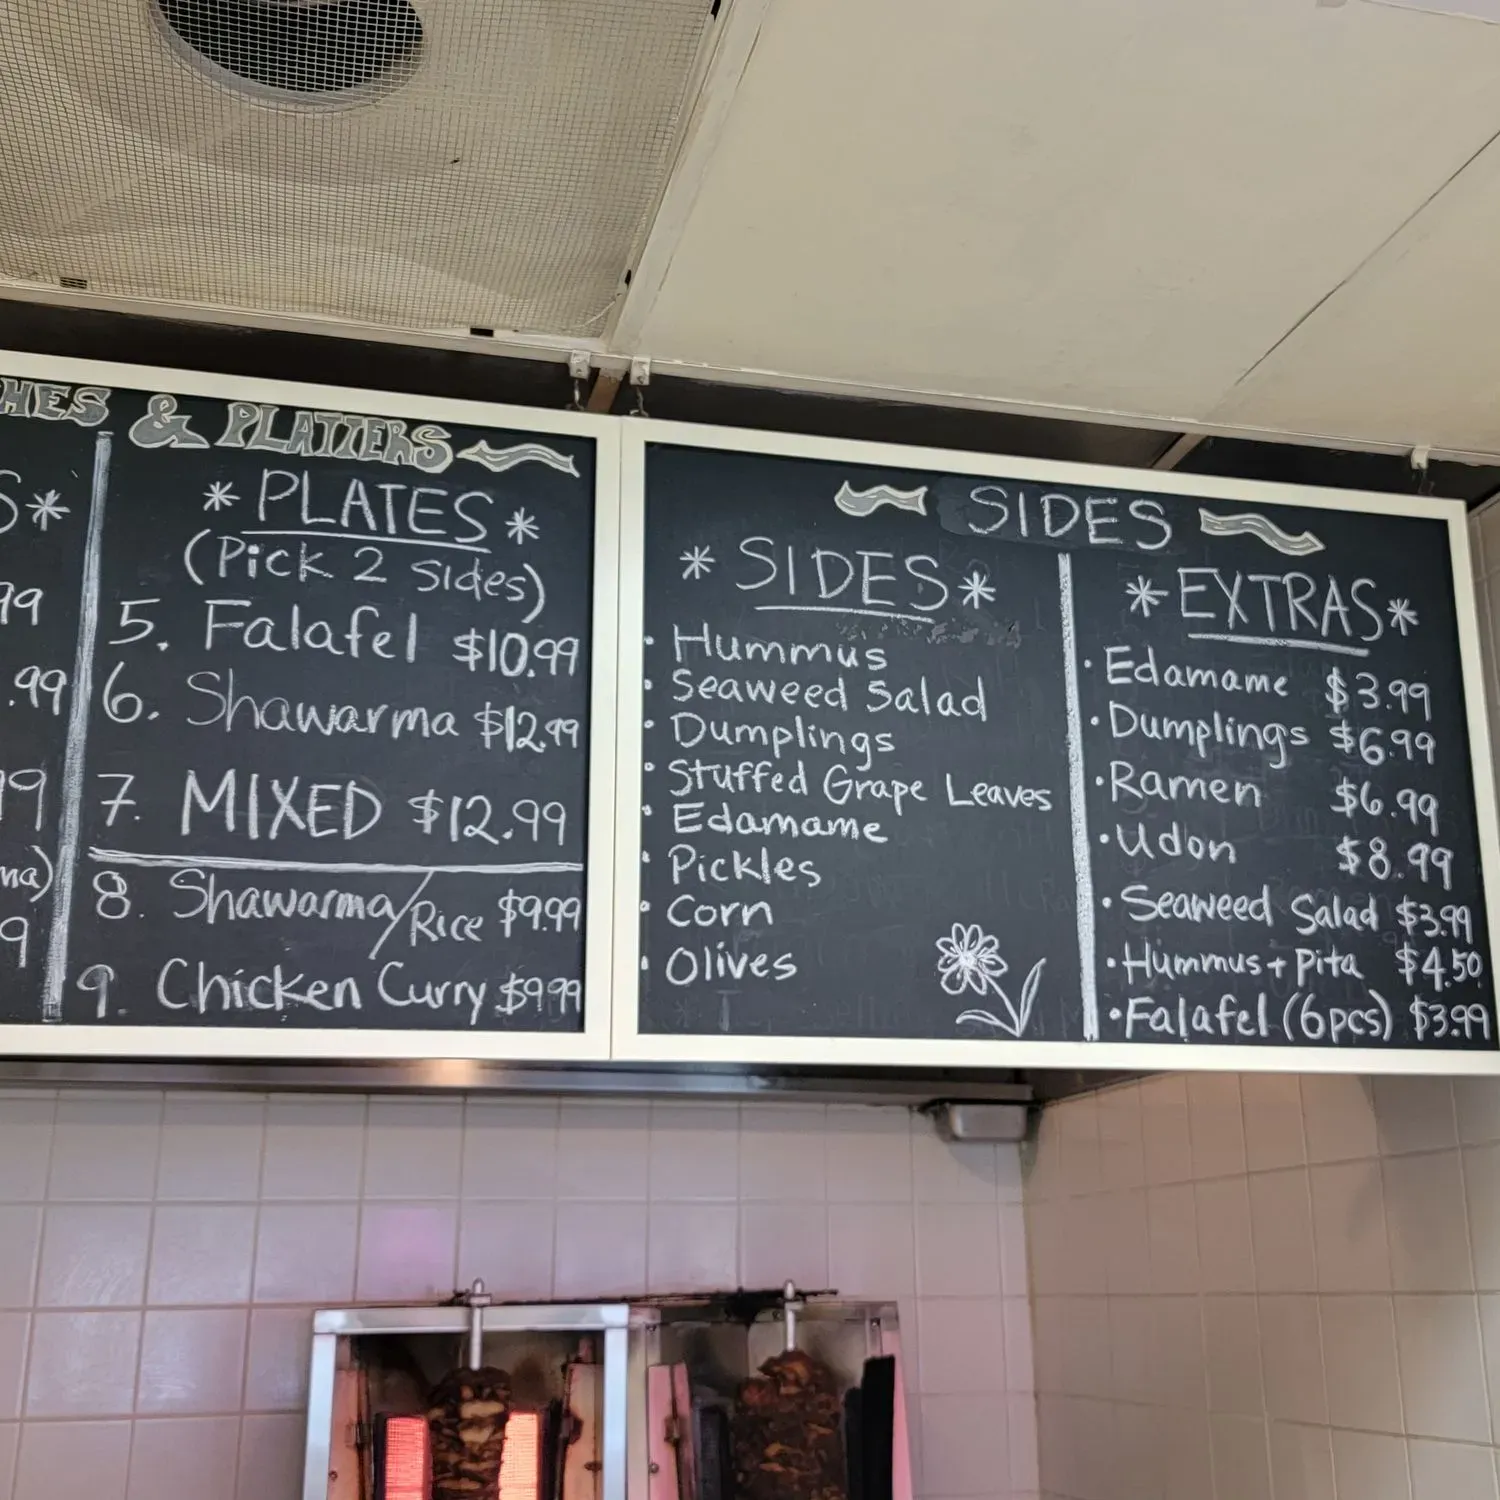 & PLATTERS
* PLATES *
(Pick 2 sides)
5. Falafel $10.99
6. Shawarma $12.99
7. MIXED $12.99
8. Shawarma/Rice $9.99
9. Chicken Curry $9.99
SIDES
* SIDES *
• Hummus
• Seaweed Salad
• Dumplings
• Stuffed Grape Leaves
• Edamame
• Pickles
• Corn
• Olives
* EXTRAS *
• Edamame $3.99
• Dumplings $6.99
• Ramen $6.99
• Udon $8.99
• Seaweed Salad $3.99
• Hummus + Pita $4.50
• Falafel (6pcs) $3.99